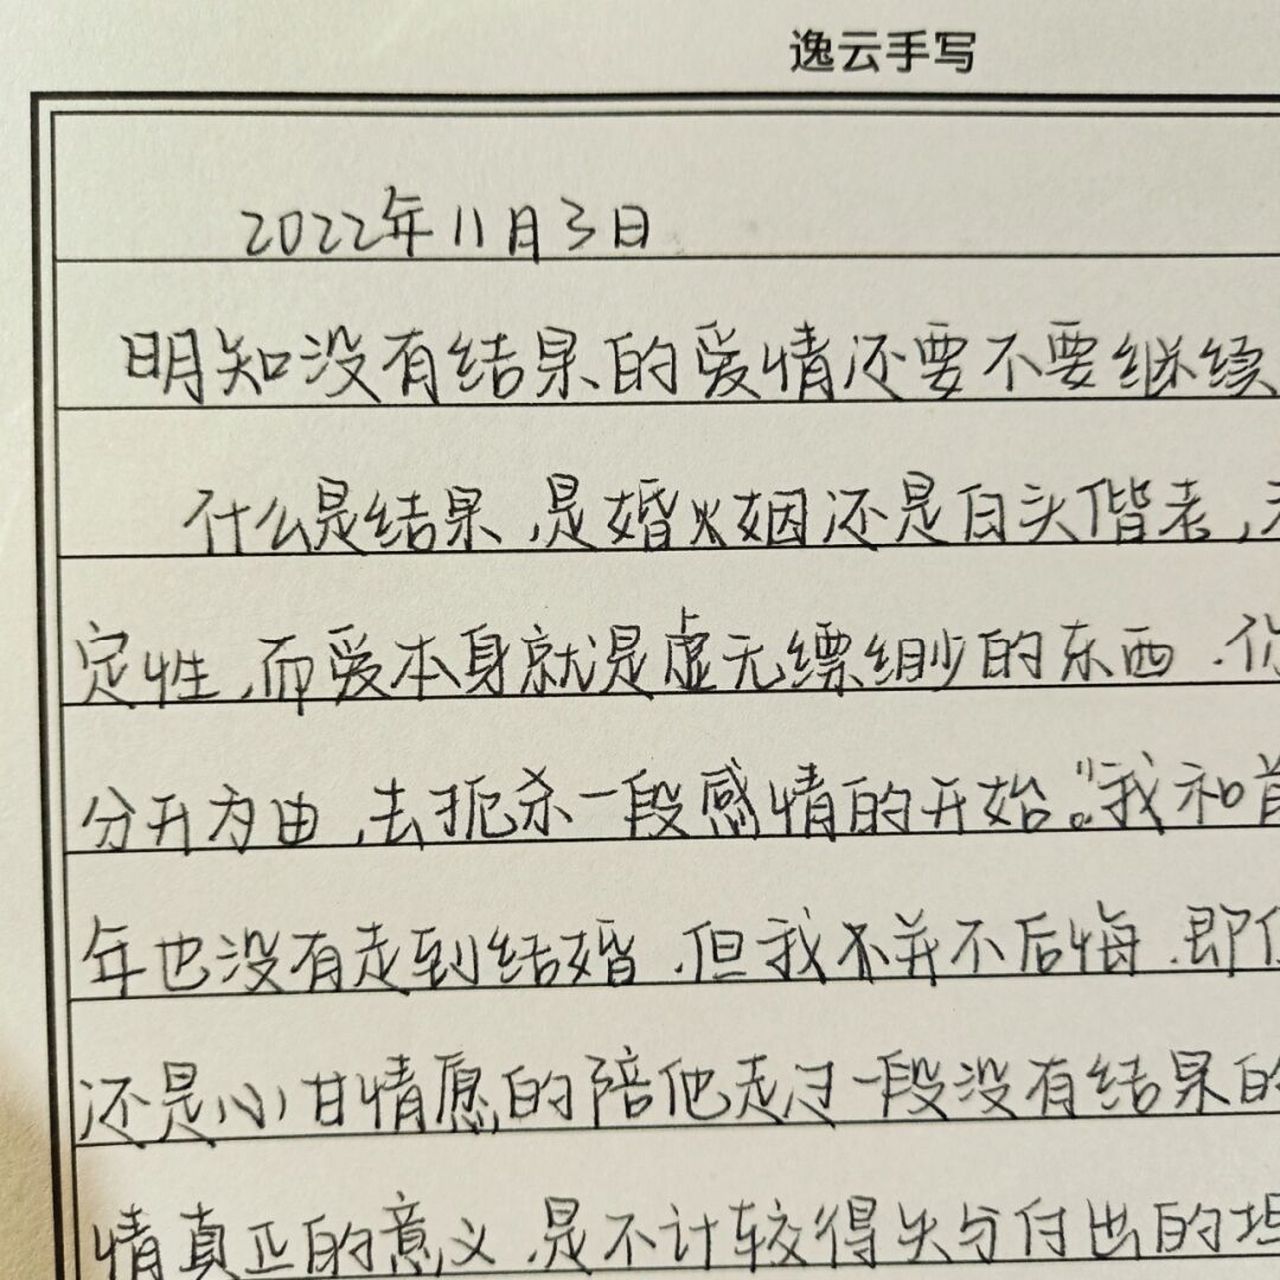 逸云手写
2022年11月3日
明知没有结果的爱情还要不要继续
什么是结果,是婚姻还是白头偕老,
定性,而爱本身就是虚无缥缈的东西.
分开为由,去扼杀一段感情的开始。"我和
年也没有走到结婚,但我不并不后悔.即
还是心甘情愿的陪他走过一段没有结果的
情真正的意义,是不计较得失与付出的